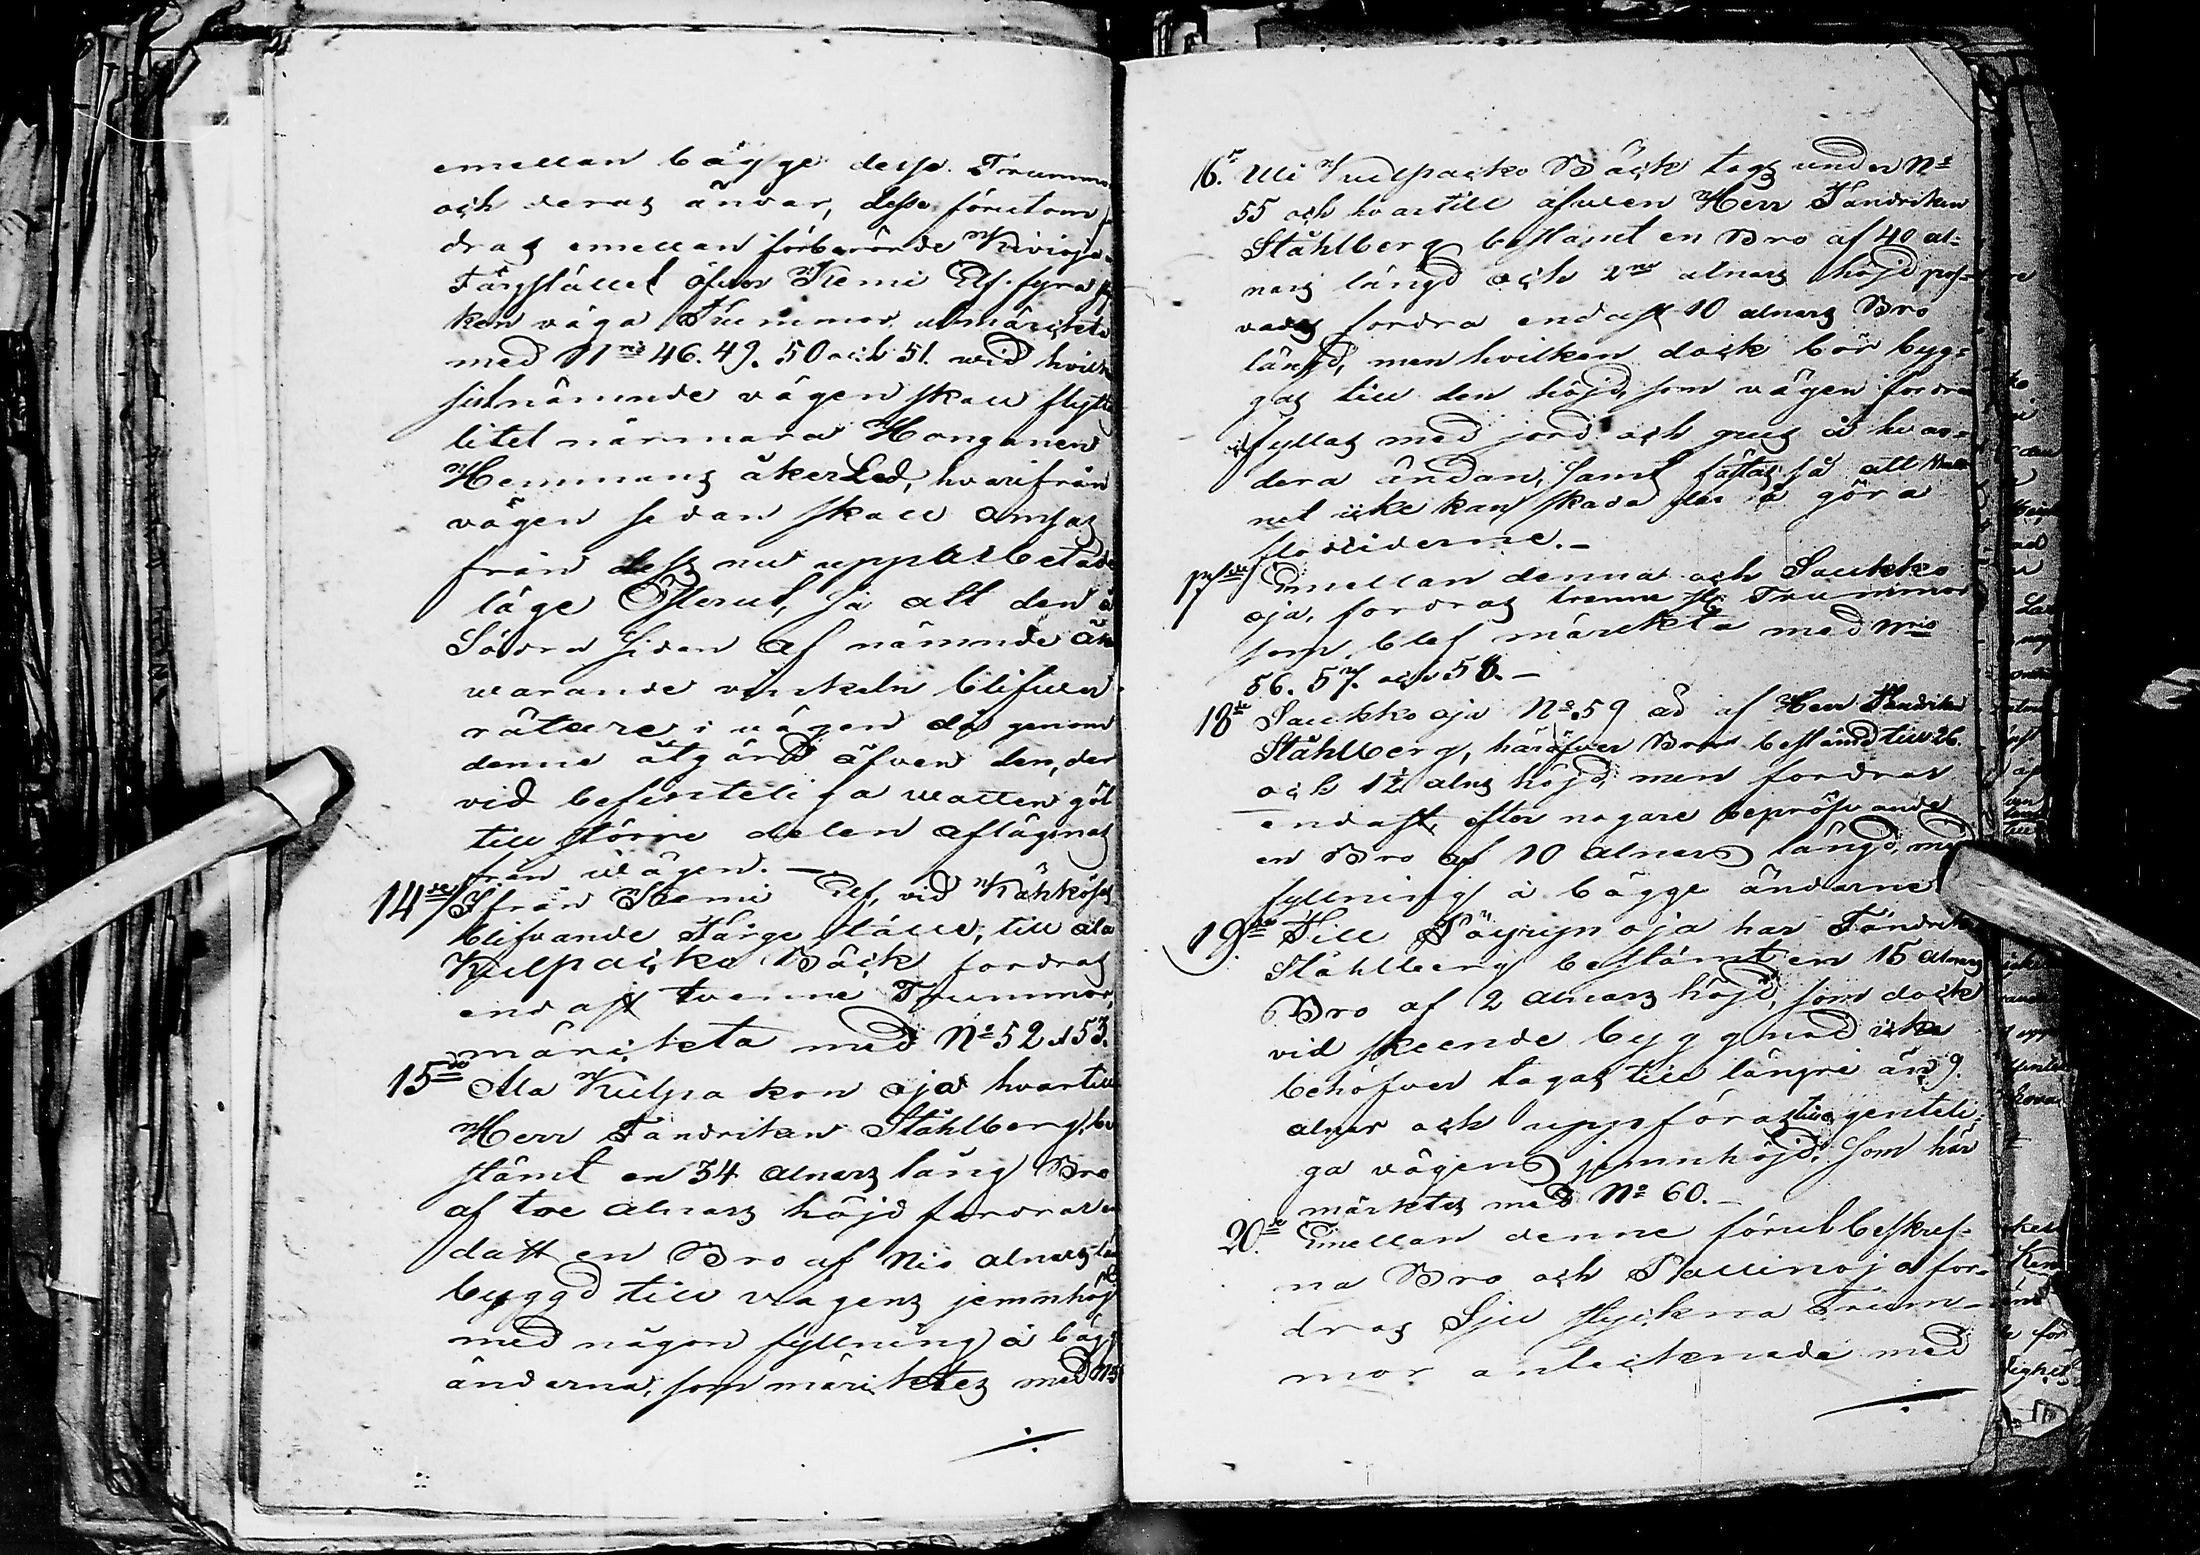 emellan bägge desse Trummor
och deras ändar, desse förutom
dras emellan förberörde Kivioja
Färgstället öfver Kemi Elf. fyra
ken väga Trummor utmärckte
med Nris 46. 49. 50 och 51. wid hvilka
sistnämnde vägen skall flytt
litet närmare Hanganen
Hemmans åkerLed, hvarifrån
vägen sedan skall omsas
från dess nu upparbetade
läge Österut, så att den å
Södra sidan af nämnde åk
warande vinkeln blifwer
rätare i vägen då genom
denne åtgärd äfven den, der
vid befinteliga watten göl
till större delen aflägsnas
från wägen. —
14de Ifrån Kemi Elf, vid Kähkösen
blifvande Färge ställe, till ala
Kulpacko Bäck fordras
endast tvenne Trummor,
märckta med No 52 & 53.
15de Ala Kulpakon oja hvartill
Herr Fändriken Ståhlberg be
stämt en 34 alnars lång Bro
af tre alnars höjd fordrar en
dast en Bro af Nio alnars lä
byggd till vägens jemnhöjd
med någon fyllning å bägg
ändarna, som märcktes med No 5
16. Uli Kulpacko Bäck togs under No
55 och hvartill äfwen Herr Fändriken
Ståhlberg bestämt en Bro af 40 al=
nars längd och 2ne alnars höjd
fordra endast 10 alnars Bro
längd, men hvilken dock bör byg=
gas till den höjd, som vägen fordrar
fyllas med jord och grus å hvar=
dera ändan, samt fattas så att
net icke kan skada å göra
flodtiderne. —
17de Emellan denna och Saukko
oja, fordras trenne st. Trummor
som blef märckta med Nris
56. 57. och 58. —
18de Saukko oja No 59 är af Herr Fändriken
Ståhlberg, häröfver Bro bestämd till 26.
och 1½ alns höjd, men fordrar
endast, efter nogare bepröfvande
en Bro af 10 alnars längd, med
fyllning å bägge ändarne
19de Till Pöyryn oja har Fändrik
Ståhlberg bestämt en 15 alnars
Bro af 2 alnars höjd, som dock
vid skeende byggnad icke
behöfver tagas till längre än 9.
alnar och uppföras till egenteli=
ga vägens jemnhöjd, som här
märktes med No 60. —
20de Emellan denne förut beskref=
na Bro och Pallinoja for=
dras Sju stycken Trum=
mor antecknade med